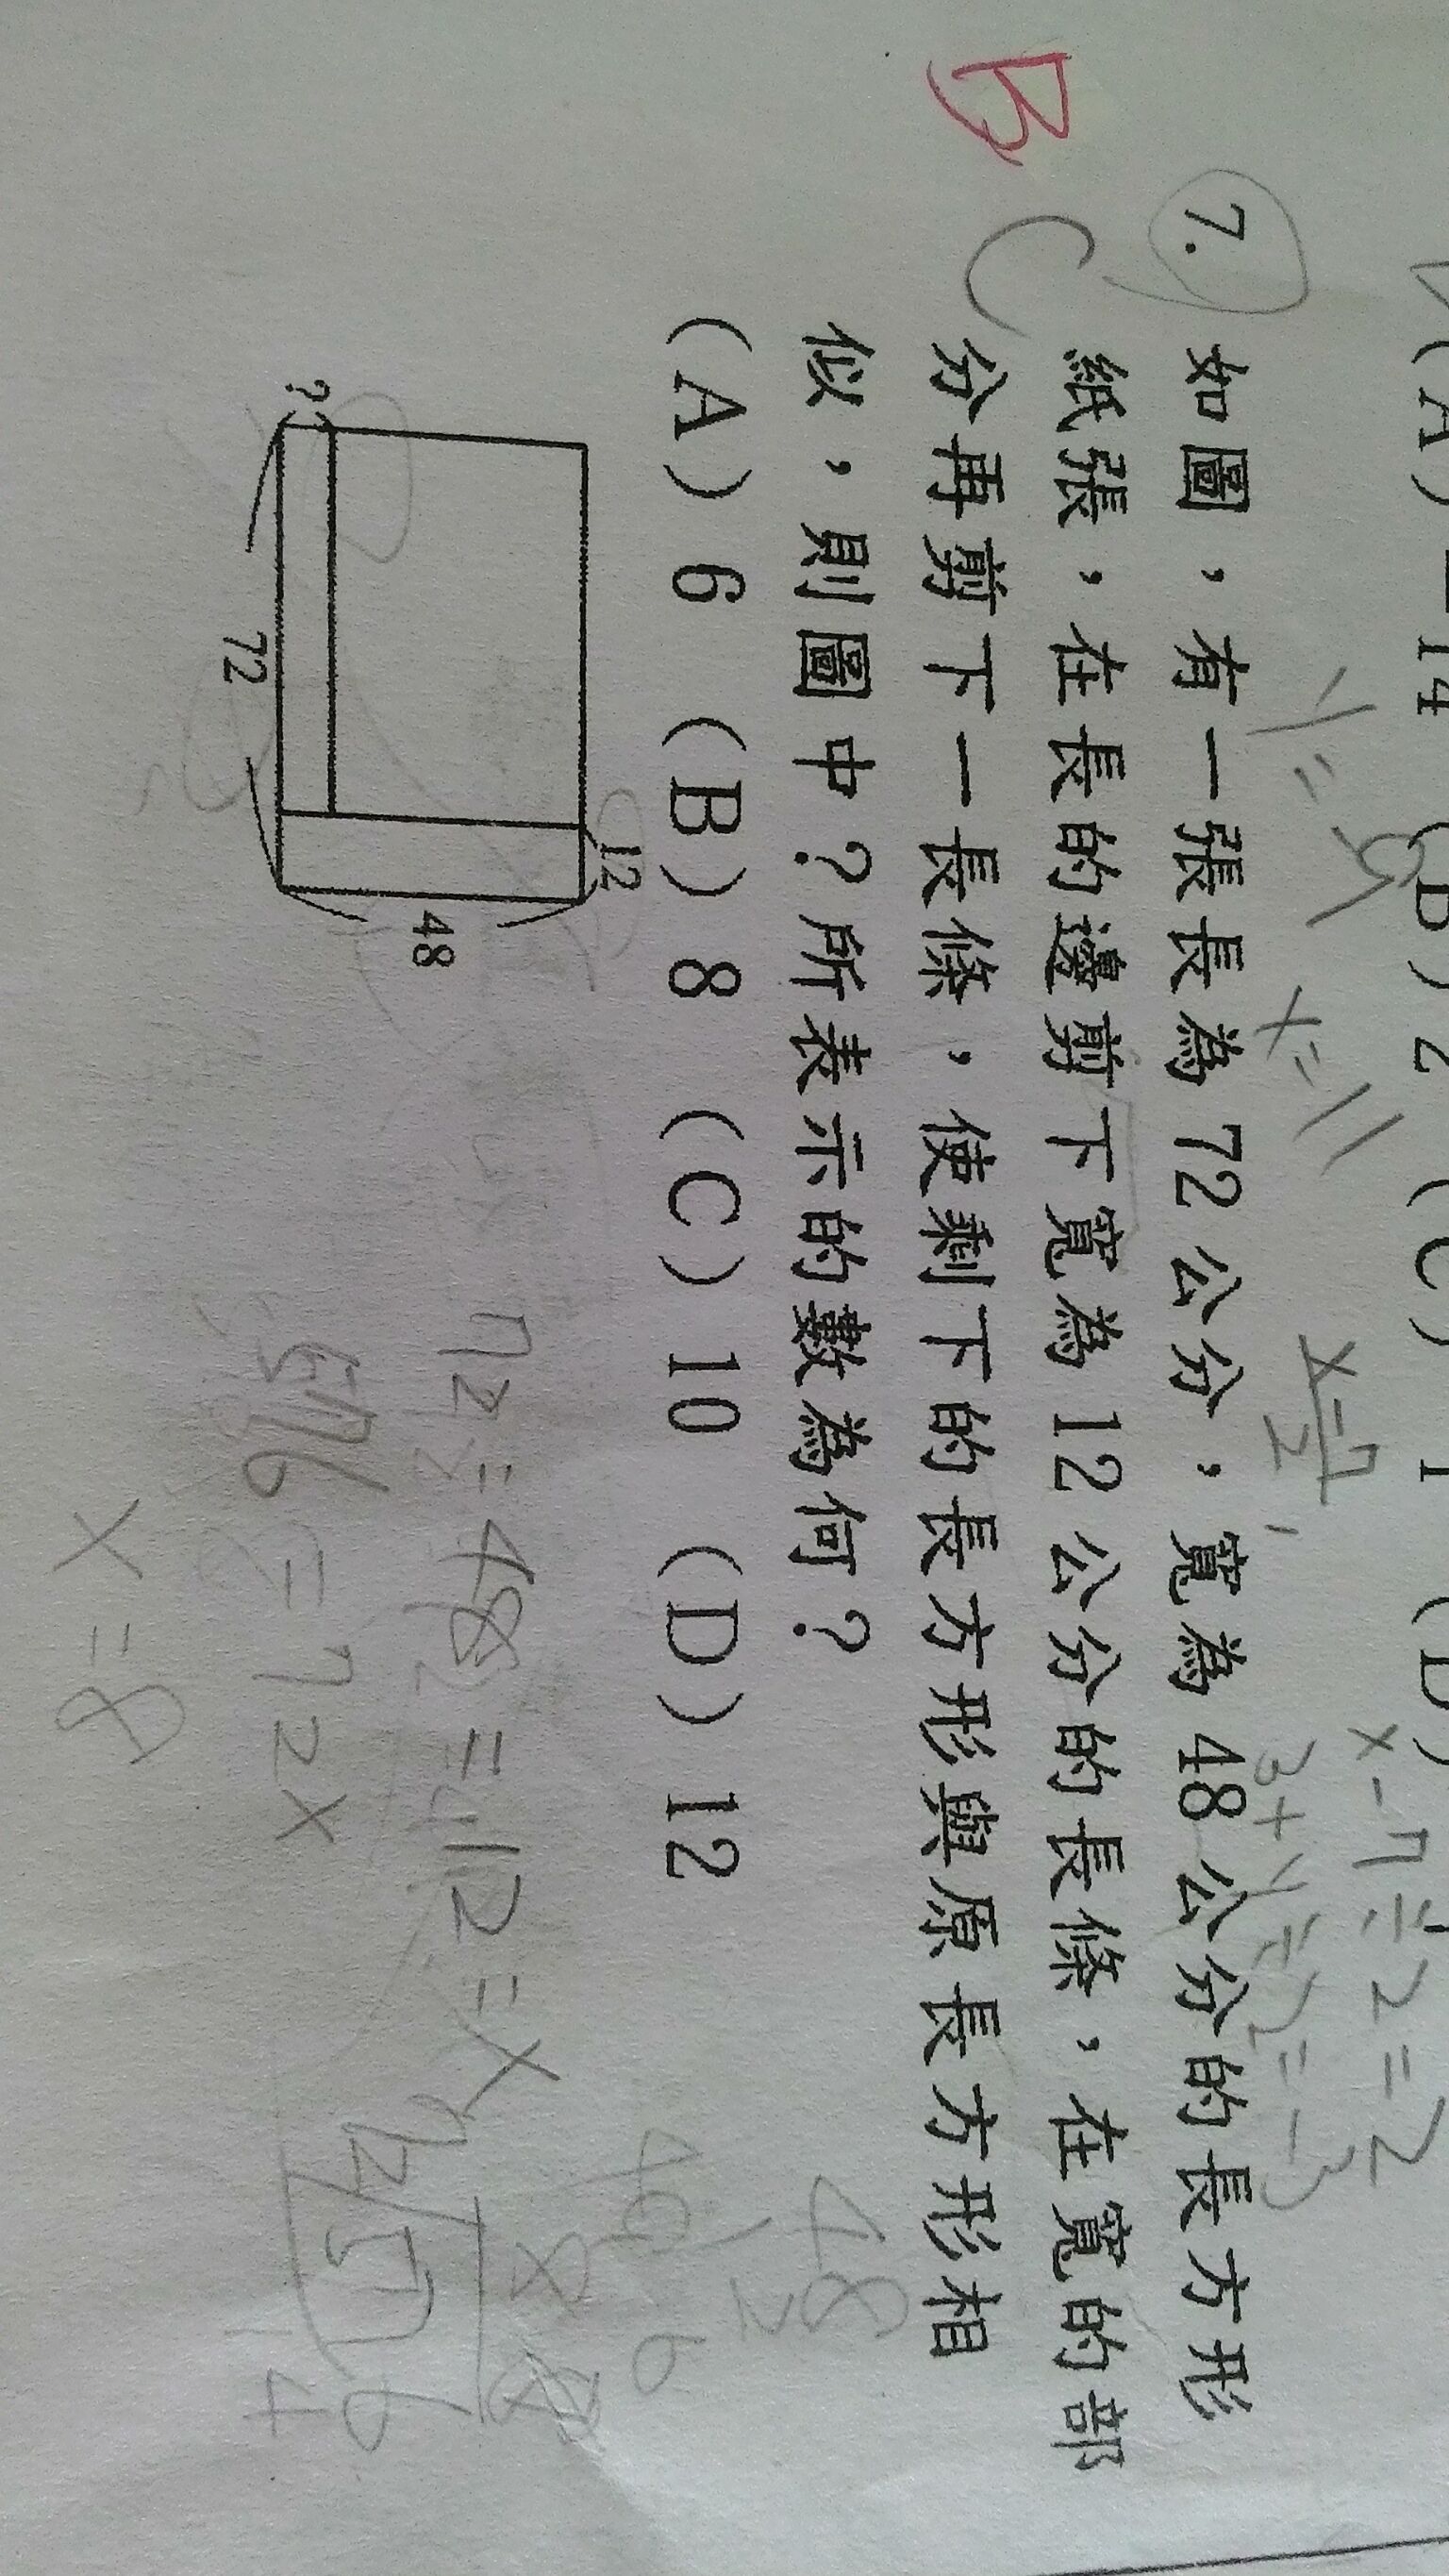 (A) -14 (B) 2 (C) 1 (D)
x-7=2=2
y=5 x=11 x-7/2 3+y=2=-3
B
C
7. 如圖，有一張長為 72 公分，寬為 48 公分的長方形
紙張，在長的邊剪下寬為 12 公分的長條，在寬的部
分再剪下一長條，使剩下的長方形與原長方形相
似，則圖中？所表示的數為何？
(A) 6 (B) 8 (C) 10 (D) 12
12
48
72
?
48
72:48=12:x
576=72x
x=8
72 576